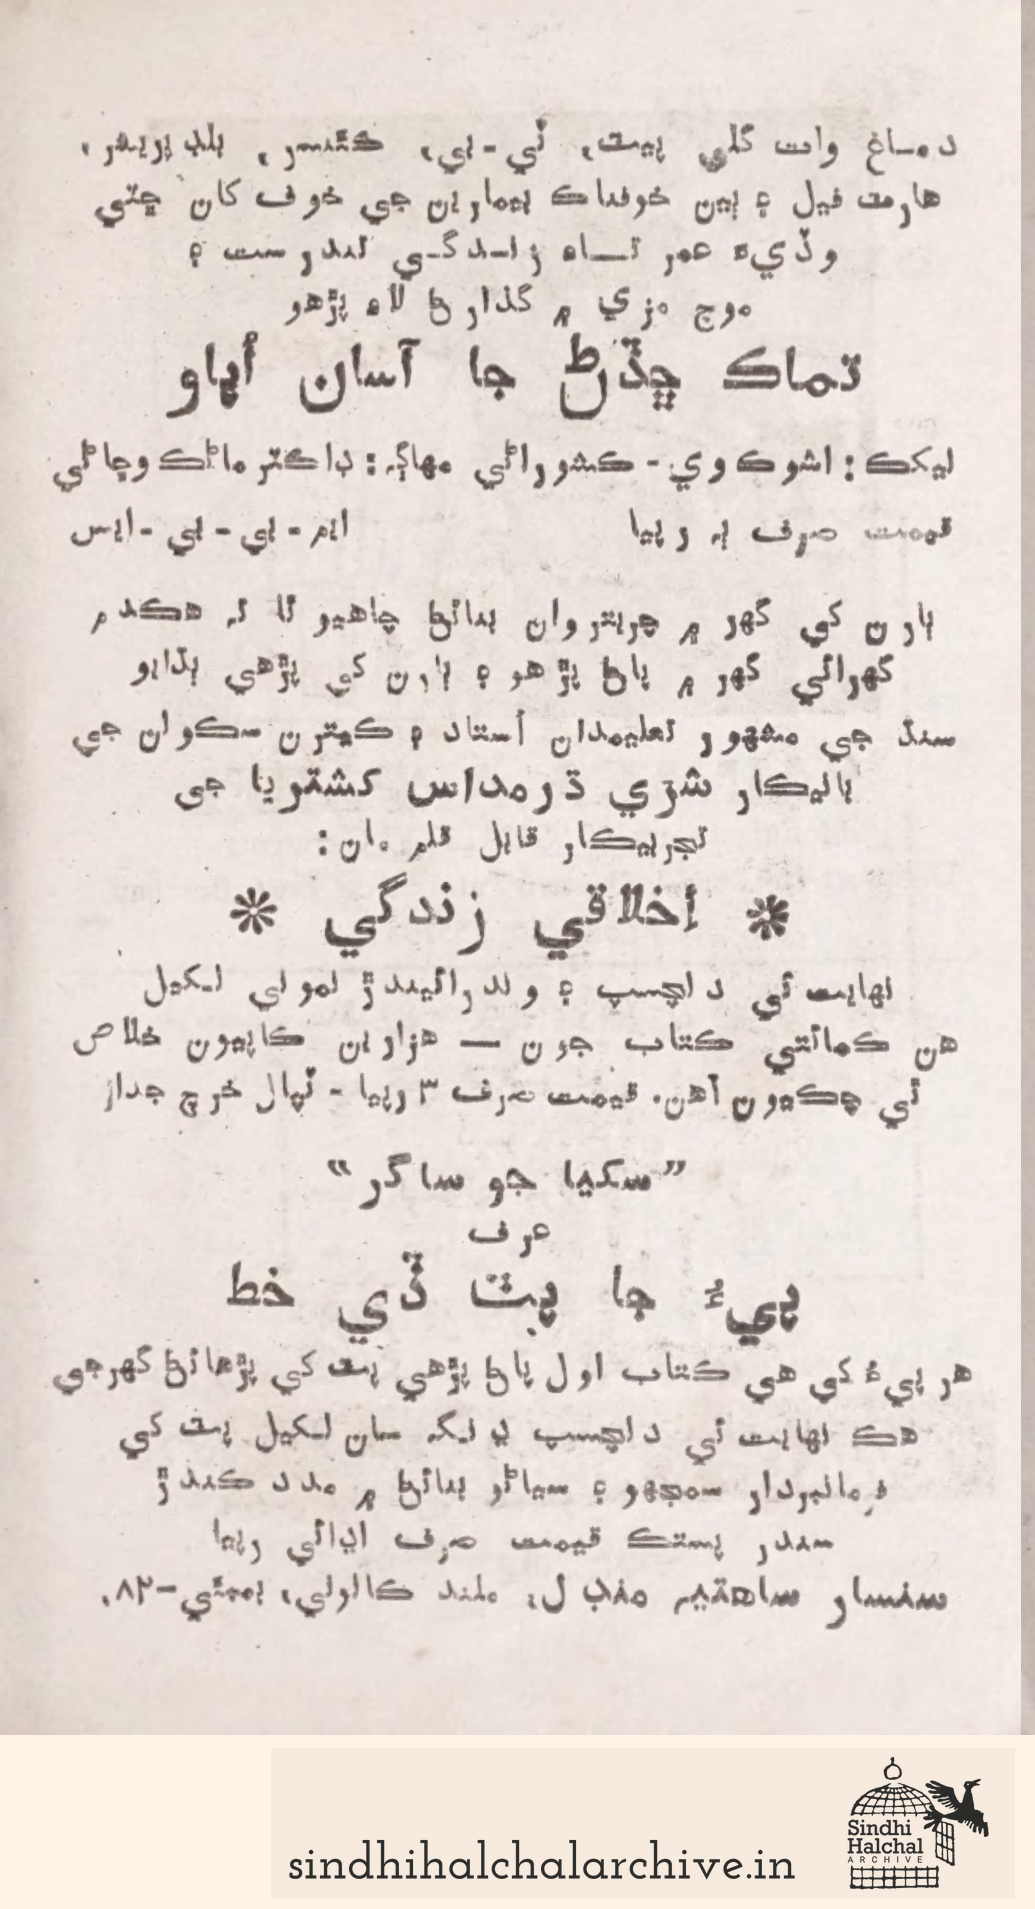 دماغ وات گلي پيٽ، ٽي-بي، ڪئنسر، بلڊ پريشر،
هارٽ فيل ۽ ٻين خوفناڪ بيمارين جي خوف کان ڇٽي
وڏيءَ عمر تــاه زنــدگــي تندرست ۽
موج مزي ۾ گذارڻ لاءِ پڙهو
تماڪ ڇڏڻ جا آسان اُپاو
ليکڪ: اشوڪ وي- ڪشوراڻي مهاڳ: ڊاڪٽر ماڻڪ وڇاڻي
قيمت صرف ٻه رپيا ايم-بي-بي-ايس
ٻارن کي گهر ۾ چرتروان بنائڻ چاهيو ٿا ته هڪدم
گهرائي گهر ۾ پاڻ پڙهو ۽ ٻارن کي پڙهي ٻڌايو
سنڌ جي مشهور تعليمدان اُستاد ۽ ڪيترن سڪولن جي
ٻاليڪار شري ڌرمداس کشتريا جي
تجربيڪار قابل قلم مان:
* اِخلاقي زندگي *
نهايت ئي دلچسپ ۽ وندرائيندڙ نموني لکيل
هن ڪمائتي ڪتاب جون — هزارين ڪاپيون خلاص
ٿي چڪيون آهن. قيمت صرف ٣ رپيا - ٽپال خرچ جدار
”سکيا جو ساگر“
عرف
پيءُ جا پٽ ڏي خط
هر پيءُ کي هي ڪتاب اول پاڻ پڙهي پٽ کي پڙهائڻ گهرجي
هڪ نهايت ئي دلچسپ ڍنگ سان لکيل پٽ کي
فرمانبردار سمجهو ۽ سياڻو بنائڻ ۾ مدد ڪندڙ
سندر پستڪ قيمت صرف اڍائي رپيا
سنسار ساهتيه منڊل، ملند ڪالوني، بمبئي-٨٢.
sindhihalchalarchive.in
Sindhi
Halchal
ARCHIVE